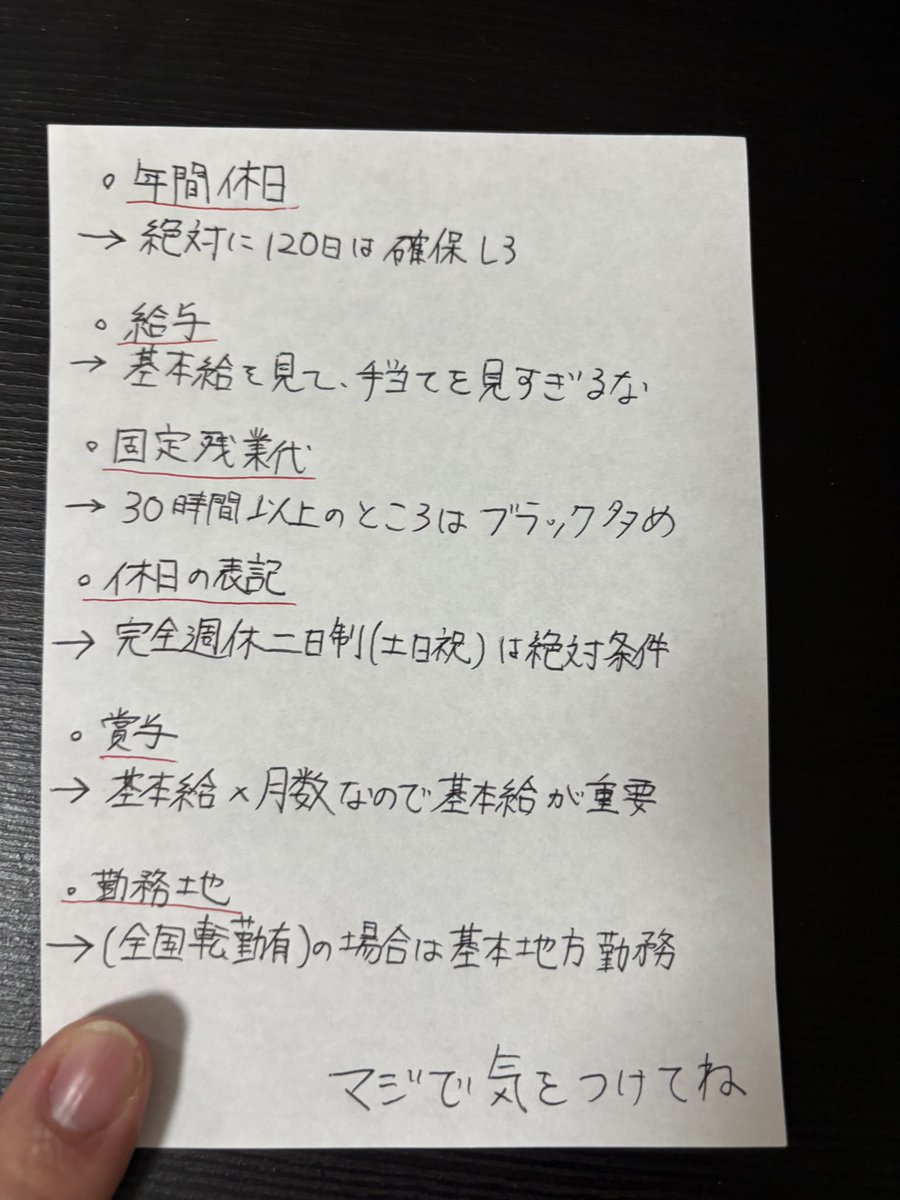 。年間休日
→ 絶対に120日は確保しろ
。給与
→ 基本給を見て、手当てを見すぎるな
。固定残業代
→ 30時間以上のところはブラック多め
。休日の表記
→ 完全週休二日制(土日祝)は絶対条件
。賞与
→ 基本給×月数なので基本給が重要
。勤務地
→(全国転勤有)の場合は基本地方勤務
マジで気をつけてね